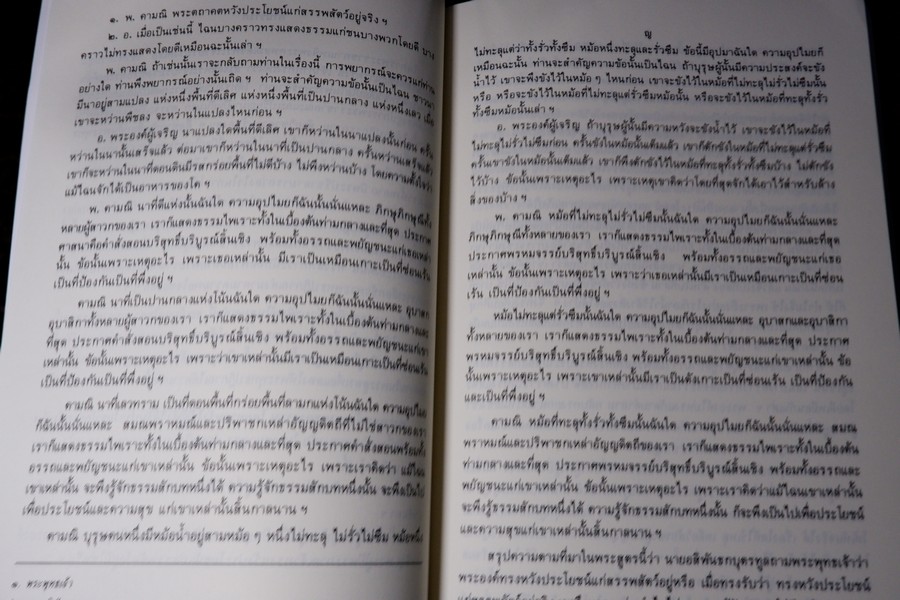 ๑. พ. คามณิ พระตถาคตหวังประโยชน์แก่สรรพสัตว์อยู่จริง ฯ
๒. อ. เมื่อเป็นเช่นนี้ ไฉนบางคราวทรงแสดงธรรมแก่ชนบางพวกโดยดี บาง
คราวไม่ทรงแสดงโดยดีเหมือนฉะนั้นเล่า ฯ
พ. คามณิ ถ้าเช่นนั้นเราจะกลับถามท่านในเรื่องนี้ การพยากรณ์จะควรแก่ท่าน
อย่างใด ท่านพึงพยากรณ์อย่างนั้นเถิด ฯ ท่านจะสำคัญความข้อนั้นเป็นไฉน ชาวนา
มีนาอยู่สามแปลง แห่งหนึ่งพื้นที่ดีเลิศ แห่งหนึ่งพื้นที่เป็นปานกลาง แห่งหนึ่งเลว เมื่อ
เขาจะหว่านพืชลง จะหว่านในแปลงไหนก่อน ฯ
อ. พระองค์ผู้เจริญ นาแปลงใดพื้นที่ดีเลิศ เขาก็หว่านในนาแปลงนั้นก่อน ครั้น
หว่านในนานั้นเสร็จแล้ว ต่อมาเขาก็หว่านในนาที่เป็นปานกลาง ครั้นหว่านเสร็จแล้ว
เขาก็จะหว่านในนาที่ดอนดินมีรสกร่อยพื้นที่ไม่ดีบ้าง ไม่พึงหว่านบ้าง โดยความตั้งใจว่า
แม้ไฉนจักได้เป็นอาหารของโค ฯ
พ. คามณิ นาที่ดีแห่งนั้นฉันใด ความอุปไมยก็ฉันนั้นนั่นแหละ ภิกษุภิกษุณีทั้ง
หลายผู้สาวกของเรา เราก็แสดงธรรมไพเราะทั้งในเบื้องต้นท่ามกลางและที่สุด ประกาศ
ศาสนาคือคำสั่งสอนบริสุทธิ์บริบูรณ์สิ้นเชิง พร้อมทั้งอรรถและพยัญชนะแก่เขาเหล่า
นั้น ข้อนั้นเพราะเหตุอะไร เพราะเธอเหล่านั้น มีเราเป็นเหมือนเกาะเป็นที่ซ่อนเร้น
เป็นที่ป้องกันเป็นที่พึ่งอยู่ ฯ
คามณิ นาที่เป็นปานกลางแห่งโน้นฉันใด ความอุปไมยก็ฉันนั้นนั่นแหละ อุบาสก
อุบาสิกาทั้งหลายผู้สาวกของเรา เราก็แสดงธรรมไพเราะทั้งในเบื้องต้นท่ามกลางและ
ที่สุด ประกาศคำสั่งสอนบริสุทธิ์บริบูรณ์สิ้นเชิง พร้อมทั้งอรรถและพยัญชนะแก่เขา
เหล่านั้น ข้อนั้นเพราะเหตุอะไร เพราะว่าเขาเหล่านั้นมีเราเป็นเหมือนเกาะเป็นที่ซ่อนเร้น
เป็นที่ป้องกันเป็นที่พึ่งอยู่ ฯ
คามณิ นาที่เลวทราม เป็นที่ดอนพื้นที่กร่อยพื้นที่ลามกแห่งโน้นฉันใด ความอุปไมย
ก็ฉันนั้นนั่นแหละ สมณพราหมณ์และปริพาชกเหล่าอัญญดิตถีที่ไม่ใช่สาวกของเรา
เราก็แสดงธรรมไพเราะทั้งในเบื้องต้นท่ามกลางและที่สุด ประกาศคำสั่งสอนพร้อมทั้ง
อรรถและพยัญชนะแก่เขาเหล่านั้น ข้อนั้นเพราะเหตุอะไร เพราะเราคิดว่า แม้ไฉน
เขาเหล่านั้น จะพึงรู้จักธรรมสักบทหนึ่งได้ ความรู้จักธรรมสักบทหนึ่งนั้น จะพึงเป็นไป
เพื่อประโยชน์และความสุข แก่เขาเหล่านั้นสิ้นกาลนาน ฯ
คามณิ บุรุษคนหนึ่งมีหม้อน้ำอยู่สามหม้อ ๆ หนึ่งไม่ทะลุ ไม่รั่วไม่ซึม หม้อหนึ่ง
๑. พระพุทธเจ้า
ญ
ไม่ทะลุแต่ว่าทั้งรั่วทั้งซึม หม้อหนึ่งทะลุและรั่วซึม ข้อนี้มีอุปมาฉันใด ความอุปไมยก็
เหมือนฉะนั้น ท่านจะสำคัญความข้อนั้นเป็นไฉน ถ้าบุรุษผู้นั้นมีความประสงค์จะขัง
น้ำไว้ เขาจะพึงขังไว้ในหม้อ ๆ ไหนก่อน เขาจะขังไว้ในหม้อที่ไม่ทะลุไม่รั่วไม่ซึมนั้น
หรือ หรือจะขังไว้ในหม้อที่ไม่ทะลุแต่รั่วซึมหม้อนั้น หรือจะขังไว้ในหม้อที่ทะลุทั้งรั่ว
ทั้งซึมหม้อนั้นเล่า ฯ
อ. พระองค์ผู้เจริญ ถ้าบุรุษผู้นั้นมีความหวังจะขังน้ำไว้ เขาจะขังไว้ในหม้อที่
ไม่ทะลุไม่รั่วไม่ซึมก่อน ครั้นขังในหม้อนั้นเต็มแล้ว เขาก็ตักขังในหม้อที่ไม่ทะลุแต่รั่วซึม
ครั้นเขาขังในหม้อนั้นเต็มแล้ว เขาก็พึงตักขังไว้ในหม้อที่ทะลุทั้งรั่วทั้งซึมบ้าง ไม่ตักขัง
ไว้บ้าง ข้อนั้นเพราะเหตุอะไร เพราะเหตุเขาคิดว่าโดยที่สุดจักได้เอาไว้สำหรับล้าง
สิ่งของบ้าง ฯ
พ. คามณิ หม้อที่ไม่ทะลุไม่รั่วไม่ซึมนั้นฉันใด ความอุปไมยก็ฉันนั้นนั่นแหละ
ภิกษุภิกษุณีทั้งหลายของเรา เราก็แสดงธรรมไพเราะทั้งในเบื้องต้นท่ามกลางและที่สุด
ประกาศพรหมจรรย์บริสุทธิ์บริบูรณ์สิ้นเชิง พร้อมทั้งอรรถและพยัญชนะแก่เธอ
เหล่านั้น ข้อนั้นเพราะเหตุอะไร เพราะว่าเธอเหล่านั้นมีเราเป็นเหมือนเกาะเป็นที่ซ่อน
เร้น เป็นที่ป้องกันเป็นที่พึ่งอยู่ ฯ
หม้อไม่ทะลุแต่รั่วซึมนั้นฉันใด ความอุปไมยก็ฉันนั้นนั่นแหละ อุบาสกและอุบาสิกา
ทั้งหลายของเรา เราก็แสดงธรรมไพเราะทั้งในเบื้องต้นท่ามกลางและที่สุด ประกาศ
พรหมจรรย์บริสุทธิ์บริบูรณ์สิ้นเชิง พร้อมทั้งอรรถและพยัญชนะแก่เขาเหล่านั้น ข้อ
นั้นเพราะเหตุอะไร เพราะเขาเหล่านั้นมีเราเป็นดังเกาะเป็นที่ซ่อนเร้น เป็นที่ป้องกัน
และเป็นที่พึ่งอยู่ ฯ
คามณิ หม้อที่ทะลุทั้งรั่วทั้งซึมนั้นฉันใด ความอุปไมยก็ฉันนั้นนั่นแหละ สมณ
พราหมณ์และปริพาชกเหล่าอัญญดิตถีของเรา เราก็แสดงธรรมไพเราะทั้งในเบื้องต้น
ท่ามกลางและที่สุด ประกาศพรหมจรรย์บริสุทธิ์บริบูรณ์สิ้นเชิง พร้อมทั้งอรรถและ
พยัญชนะแก่เขาเหล่านั้น ข้อนั้นเพราะเหตุอะไร เพราะเราคิดว่าแม้ไฉนเขาเหล่านั้น
จะพึงรู้จักธรรมสักบทหนึ่งได้ ความรู้จักธรรมสักบทหนึ่งนั้น ก็จะพึงเป็นไปเพื่อประโยชน์
และความสุขแก่เขาเหล่านั้นสิ้นกาลนาน ฯ
สรุปความตามที่มาในพระสูตรนี้ว่า นายอสิพันธกบุตรทูลถามพระพุทธเจ้าว่า
พระองค์ทรงหวังประโยชน์แก่สรรพสัตว์อยู่หรือ เมื่อทรงรับว่า ทรงหวังประโยชน์